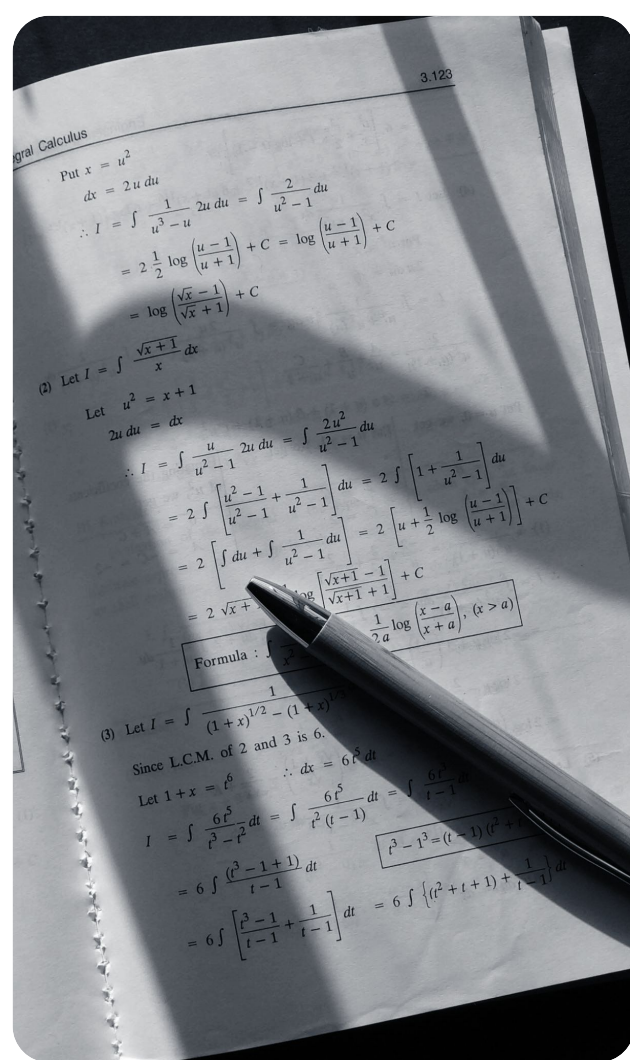 3.123
gral Calculus
Put x = u²
dx = 2u du
∴ I = ∫ 1/(u³ − u) 2u du = ∫ 2/(u² − 1) du
= 2 1/2 log ((u − 1)/(u + 1)) + C = log ((u − 1)/(u + 1)) + C
= log ((√x − 1)/(√x + 1)) + C
(2) Let I = ∫ √(x + 1)/x dx
Let u² = x + 1
2u du = dx
∴ I = ∫ u/(u² − 1) 2u du = ∫ 2u²/(u² − 1) du
= 2 ∫ [(u² − 1)/(u² − 1) + 1/(u² − 1)] du = 2 ∫ [1 + 1/(u² − 1)] du
= 2 [∫ du + ∫ 1/(u² − 1) du] = 2 [u + 1/2 log ((u − 1)/(u + 1))] + C
= 2 √x + log [(√(x+1) − 1)/(√(x+1) + 1)] + C
Formula : ∫ 1/2a log ((x − a)/(x + a)), (x > a)
(3) Let I = ∫ 1/((1 + x)^1/2 − (1 + x)^1/3)
Since L.C.M. of 2 and 3 is 6.
Let 1 + x = t⁶ ∴ dx = 6t⁵ dt
I = ∫ 6t⁵/(t³ − t²) dt = ∫ 6t⁵/(t² (t − 1)) dt = ∫ 6t³/(t − 1) dt
t³ − 1³ = (t − 1) (t² + t
= 6 ∫ (t³ − 1 + 1)/(t − 1) dt
= 6 ∫ [(t³ − 1)/(t − 1) + 1/(t − 1)] dt = 6 ∫ {(t² + t + 1) + 1/(t − 1)} dt